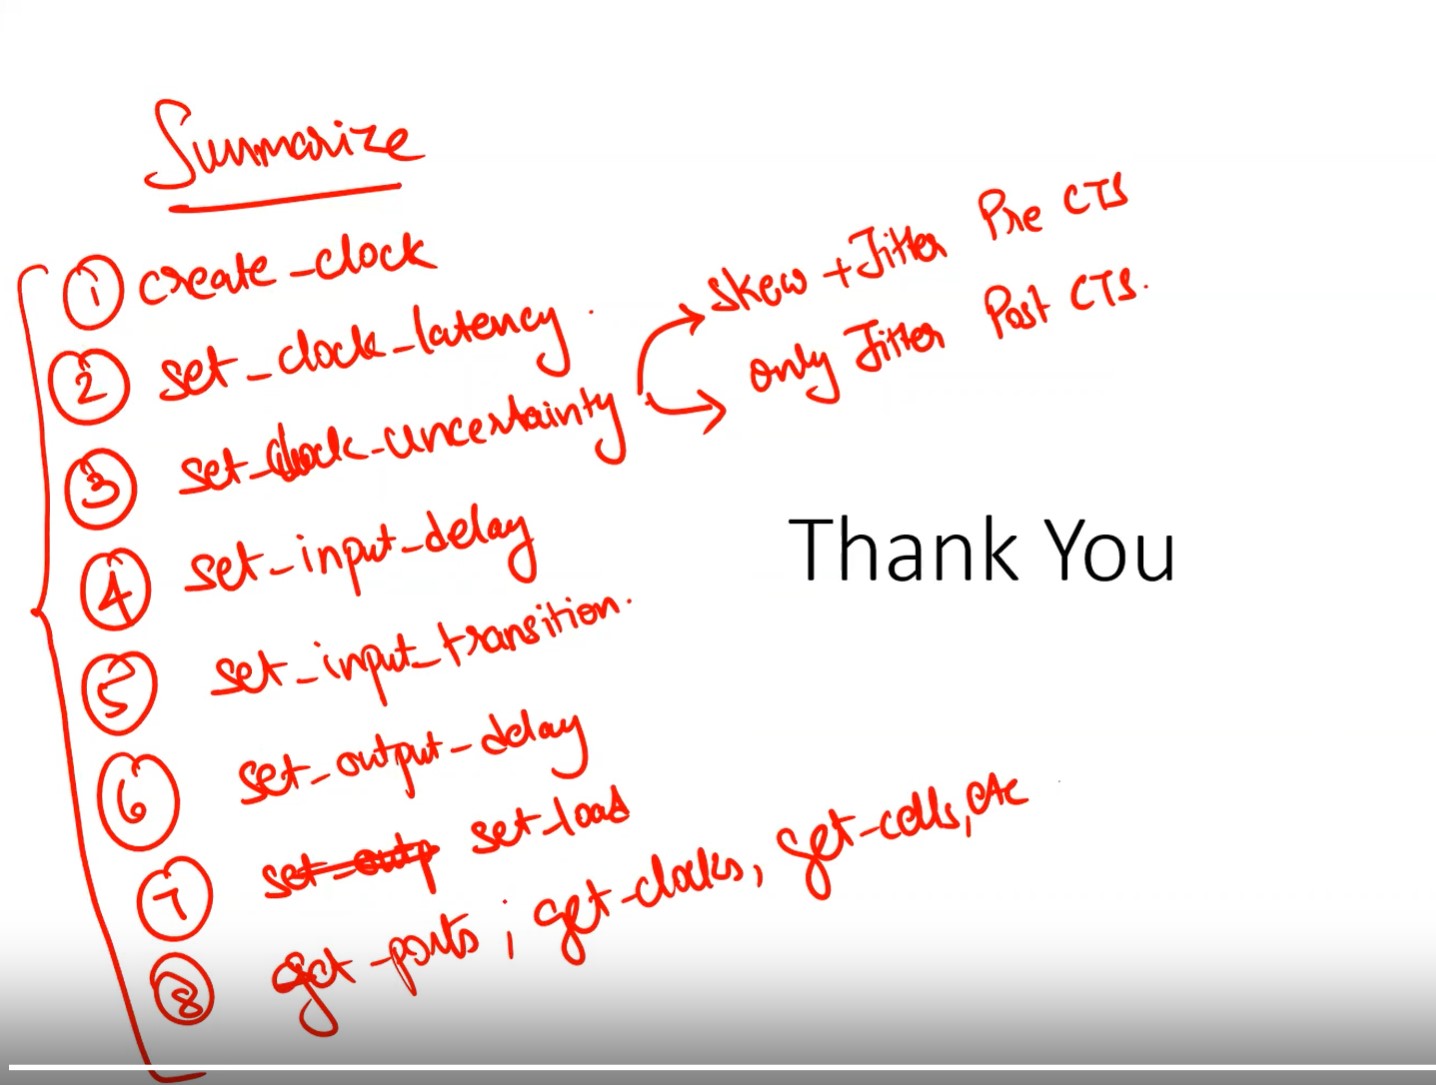 Summarize
1 create_clock
2 set_clock_latency
3 set_clock_uncertainty
skew + Jitter Pre CTS
only Jitter Post CTS.
4 set_input_delay
5 set_input_transition.
6 set_output_delay
7 set_outp set_load
8 get_ports ; get_clocks, get_cells, etc
Thank You